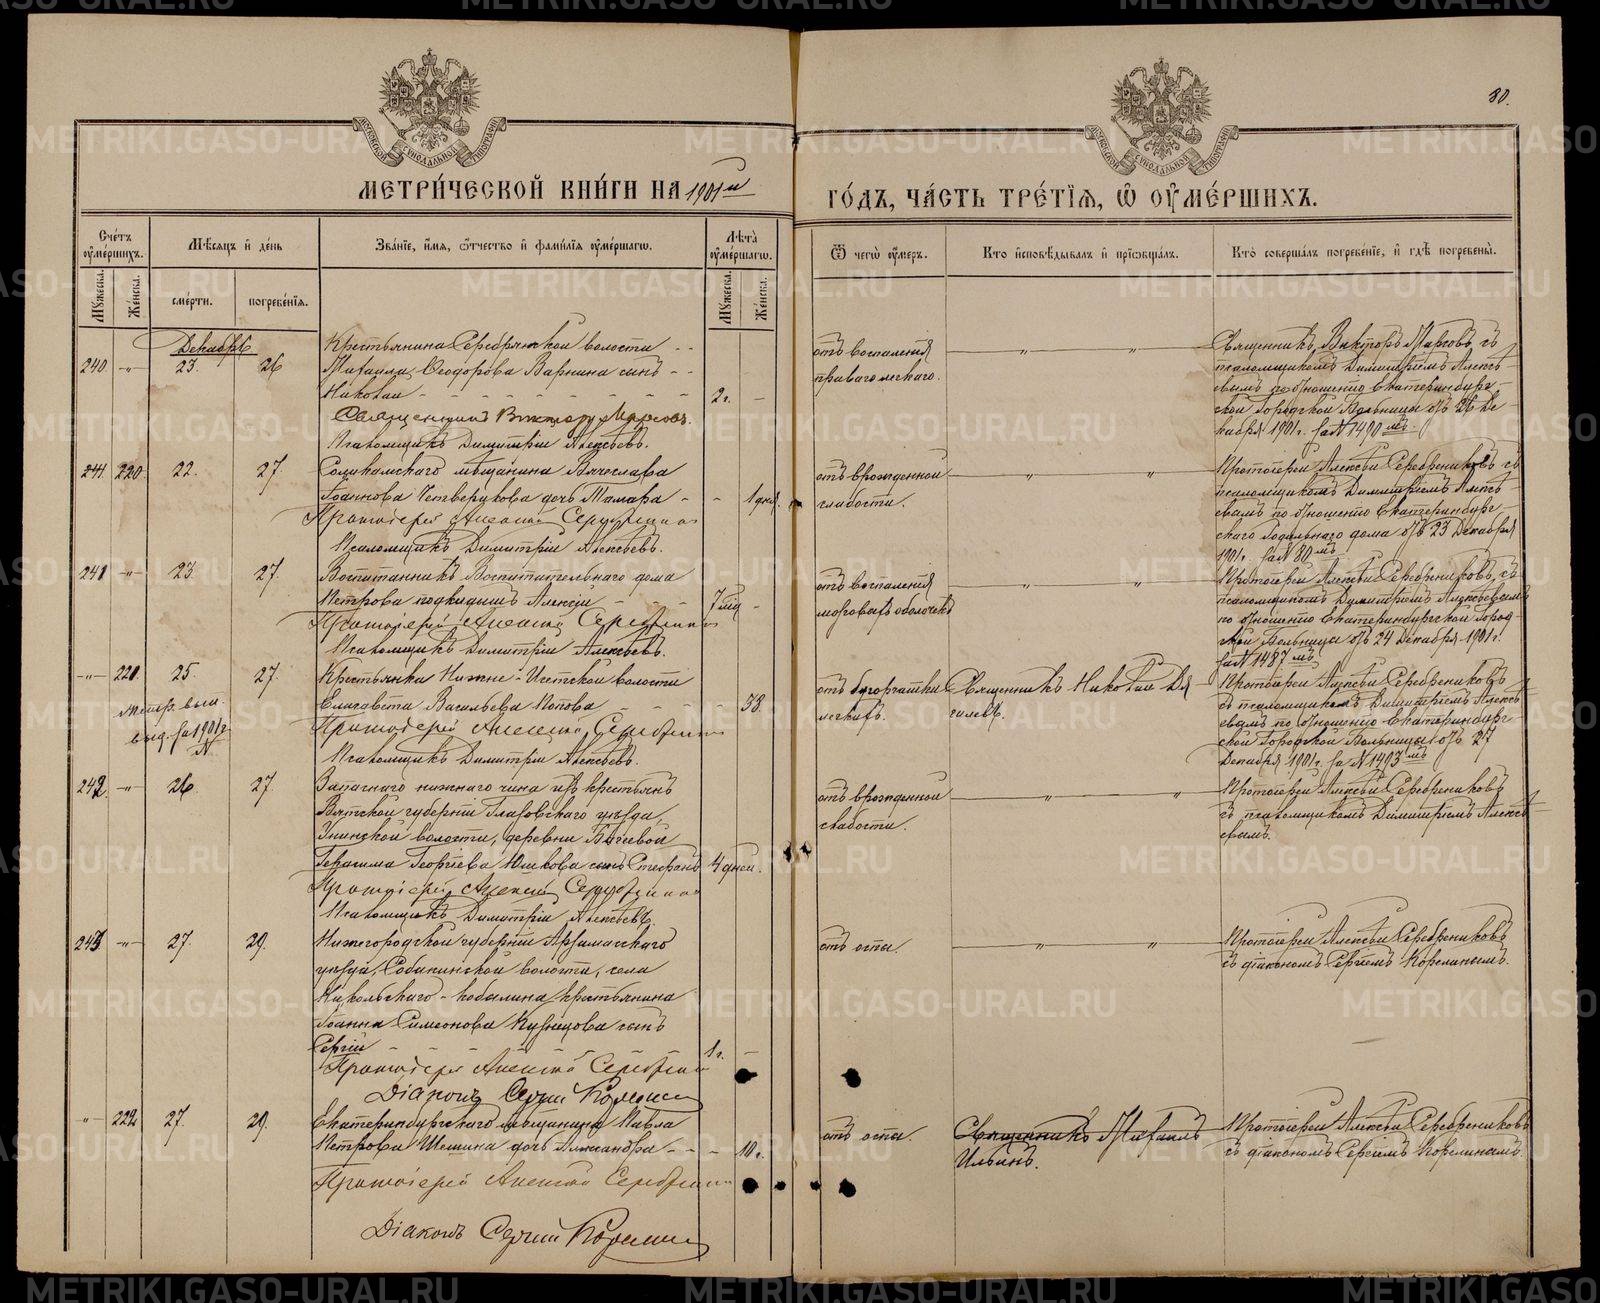 30.
МЕТРИЧЕСКОЙ КНИГИ НА 1901й
ГОДЪ, ЧАСТЬ ТРЕТІЯ, Ѿ ОУМЕРШИХЪ.
Счетъ оумершихъ.
Мѣсяцъ и день
Званіе, имя, отчество и фамилія оумершагѡ.
Лѣта оумершагѡ.
Ѿ чегѡ оумеръ.
Кто исповѣдывалъ и пріѡбщалъ.
Кто совершалъ погребеніе, и гдѣ погребены.
Мужеска.
Женска.
смерти.
погребенія.
Мужеска.
Женска.
Декабрь
240 -"- 23. 26
Крестьянина Серебрянской волости
Михаила Ѳеодорова Варнина сынъ
Николай 2 г. -
Священникъ Викторъ
Псаломщикъ Димитрій Алексѣевъ.
отъ воспаленія
праваго легкаго.
" "
Священникъ Викторъ съ
псаломщикомъ Димитріемъ Алексѣ-
евымъ по отношенію Екатеринбург-
ской Городской Больницы отъ 26 Де-
кабря 1901 г. за № 1490мъ.
220. 22. 27.
Соликамскаго мѣщанина Вячеслава
Іоаннова Четверикова дочь Тамара - - 1 дня.
Протоіерей Алексій Серебренниковъ
Псаломщикъ Димитрій Алексѣевъ.
отъ врожденной
слабости.
" "
Протоіерей Алексѣй Серебрениковъ съ
псаломщикомъ Димитріемъ Алексѣ-
евымъ по отношенію Екатеринбург-
скаго Родильнаго дома отъ 23 Декабря
1901 г. за № 80мъ
241 -"- 23. 27.
Воспитанникъ Воспитательнаго дома
Петрова подкидышъ Алексій 7 мѣс -
Протоіерей Алексій Серебренниковъ
Псаломщикъ Димитрій Алексѣевъ.
отъ воспаленія
мозговыхъ оболочекъ
" "
Протоіерей Алексѣй Серебрениковъ, съ
псаломщикомъ Димитріемъ Алексѣевымъ
по отношенію Екатеринбургской Город-
ской Больницы отъ 24 Декабря 1901 г.
за № 1487мъ
-"- 221. 25. 27.
Метр. вып.
выд. за 1901 г.
№
Крестьянка Нижне-Исетской волости
Елизавета Васильева Попова - 38.
Протоіерей Алексій Серебренниковъ
Псаломщикъ Димитрій Алексѣевъ.
отъ бугорчатки
легкихъ.
Священникъ Николай Дя-
гилевъ.
Протоіерей Алексѣй Серебрениковъ
съ псаломщикомъ Димитріемъ Алексѣ-
евымъ по отношенію Екатеринбург-
ской Городской Больницы отъ 27
Декабря 1901 г. за № 1493мъ
242. -"- 26. 27.
Запаснаго нижняго чина изъ крестьянъ
Вятской губерніи Глазовскаго уѣзда,
волости, деревни
Герасима Георгіева Юшкова сынъ Стефанъ 4 дней.
Протоіерей Алексій Серебренниковъ
Псаломщикъ Димитрій Алексѣевъ
отъ врожденной
слабости.
" "
Протоіерей Алексѣй Серебрениковъ
съ псаломщикомъ Димитріемъ Алексѣ-
евымъ.
243 -"- 27. 29.
Нижегородской губерніи Арзамасскаго
уѣзда, Собакинской волости, села
Никольскаго - крестьянина
Іоанна Симеонова Кузнецова сынъ
Сергій 1 г. -
Протоіерей Алексій Серебренниковъ
Діаконъ Сергій Корелинъ
отъ оспы.
" "
Протоіерей Алексѣй Серебрениковъ
съ діакономъ Сергіемъ Корелинымъ.
-"- 222. 27. 29.
Екатеринбургскаго мѣщанина Павла
Петрова Шешина дочь Александра - - - 10 г.
Протоіерей Алексій Серебренниковъ
Діаконъ Сергій Корелинъ
отъ оспы.
Священникъ Михаилъ
Ильинъ.
Протоіерей Алексѣй Серебрениковъ
съ діакономъ Сергіемъ Корелинымъ.
METRIKI.GASO-URAL.RU